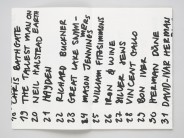 18 CHRIS BATHGATE
19 THE TALLEST MAN ON EARTH
20 NEIL HALSTEAD
21 HAYDEN
22 RICHARD BUCKNER
23 GREAT LAKE SWIMMERS
24 MASON JENNINGS
25 WILLIAM FITZSIMMONS
26 IRON & WINE
27 SILVER JEWS
28 VINCENT GALLO
29 BON IVER
30 HERMAN DÜNE
31 DAVID-IVAR HERMAN